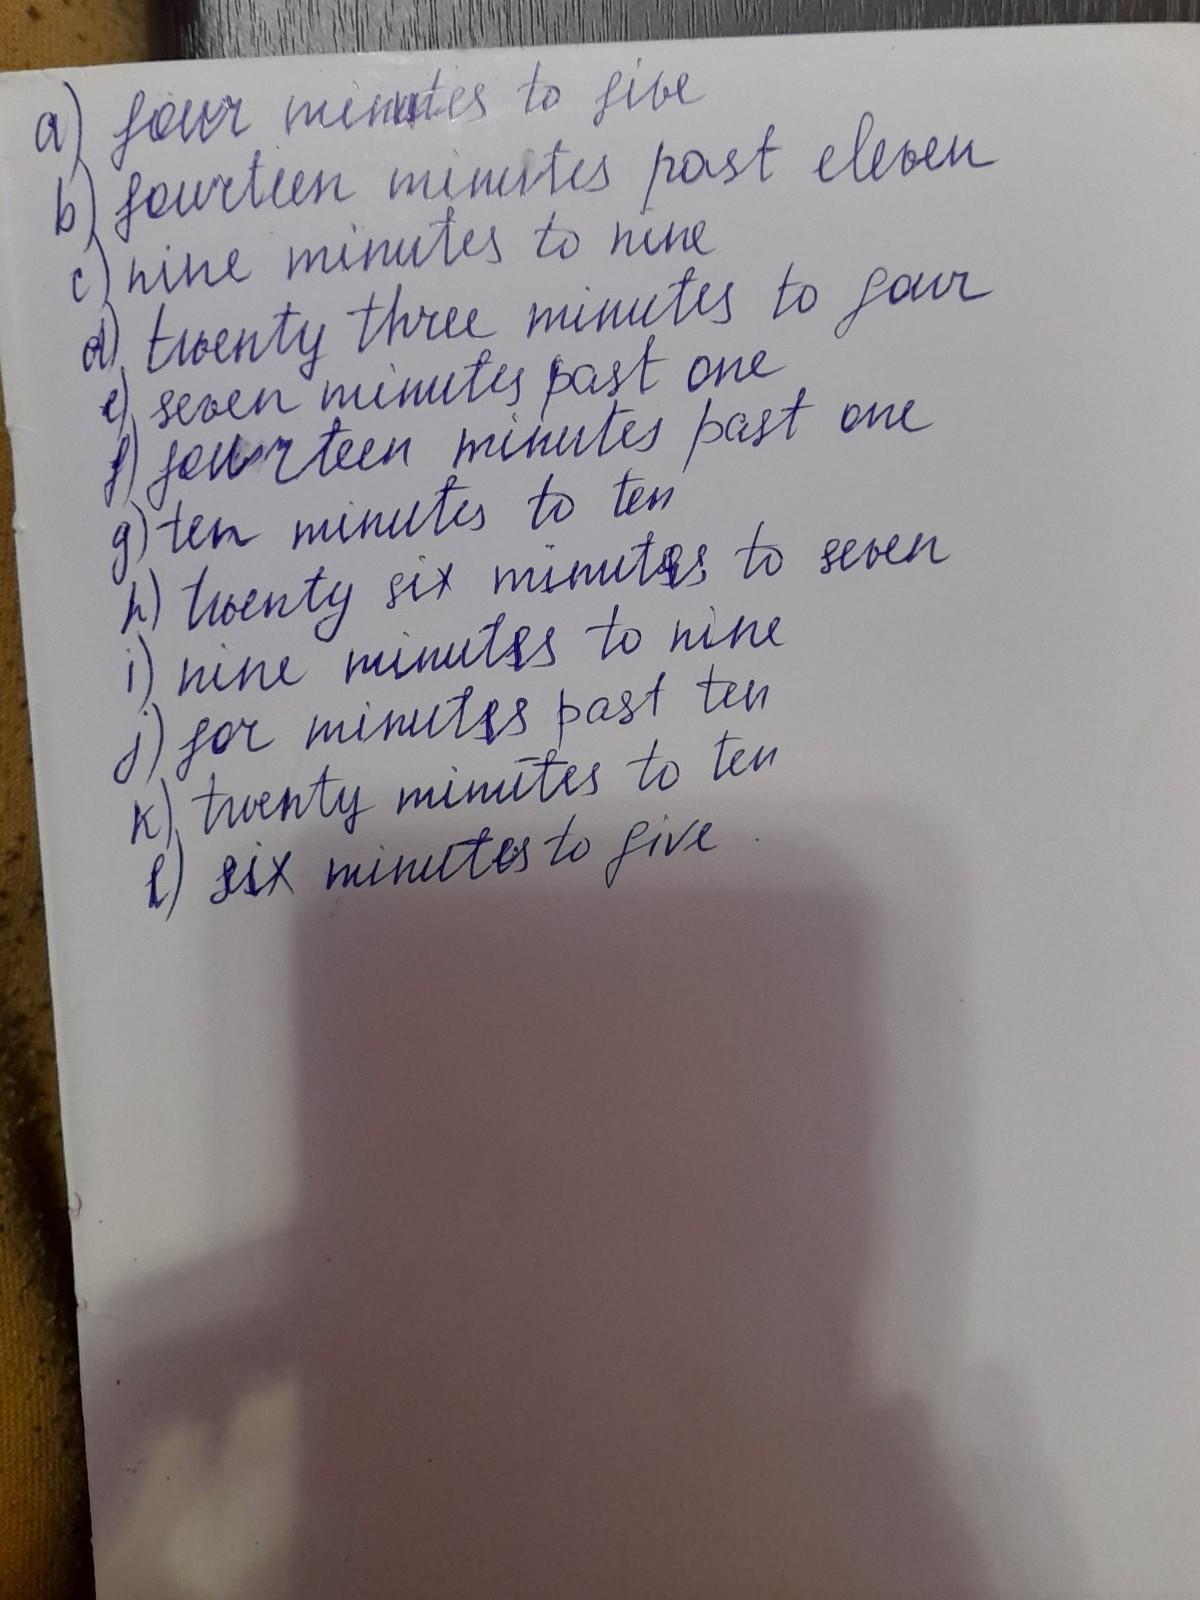 a) four minutes to five
b) fourteen minutes past eleven
c) nine minutes to nine
d) twenty three minutes to four
e) seven minutes past one
f) fourteen minutes past one
g) ten minutes to ten
h) twenty six minutes to seven
i) nine minutes to nine
j) for minutes past ten
k) twenty minutes to ten
l) six minutes to five